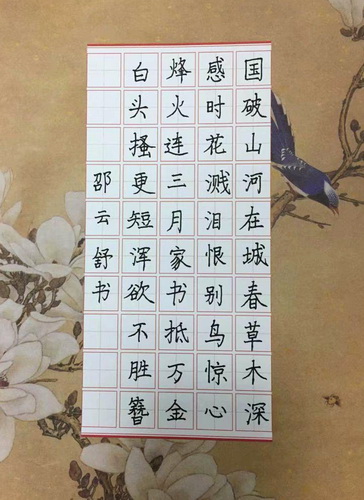 国破山河在城春草木深
感时花溅泪恨别鸟惊心
烽火连三月家书抵万金
白头搔更短浑欲不胜簪
邵云舒书